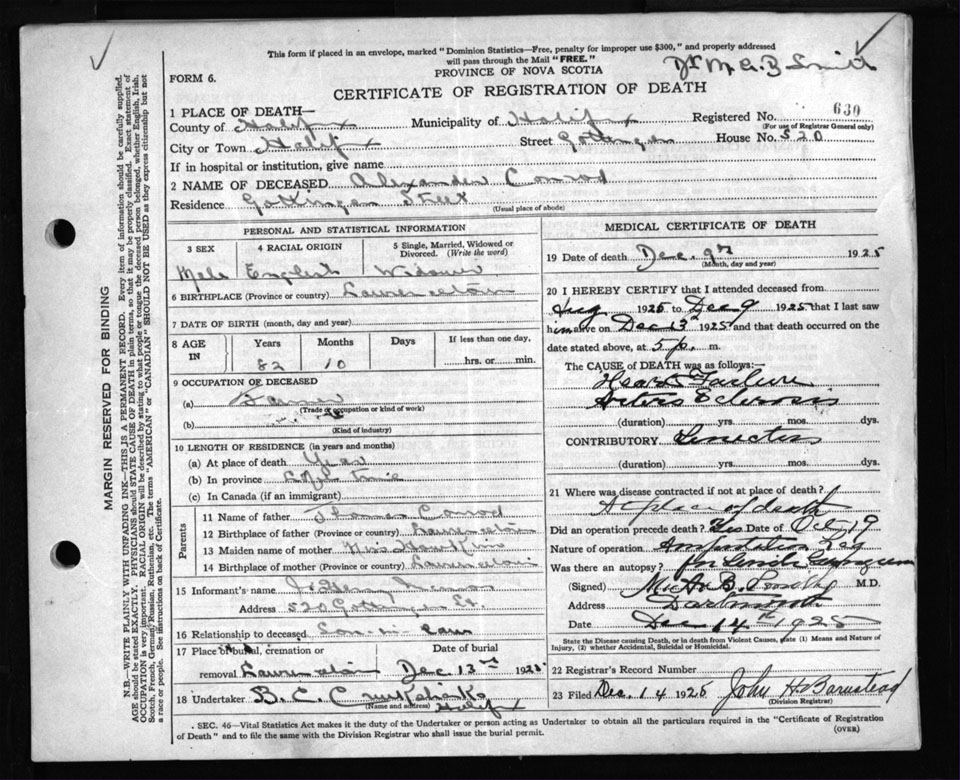 This form if placed in an envelope, marked "Dominion Statistics—Free, penalty for improper use $300," and properly addressed
will pass through the Mail "FREE."
Dr M. A. B Smith
FORM 6.
PROVINCE OF NOVA SCOTIA
CERTIFICATE OF REGISTRATION OF DEATH
1 PLACE OF DEATH—
Registered No. 630
(For use of Registrar General only)
County of Halifx Municipality of Halifx
City or Town Halifx Street Gottingen House No. 520
If in hospital or institution, give name
2 NAME OF DECEASED Alexander Conrod
Residence Gottingen Street
(Usual place of abode)
PERSONAL AND STATISTICAL INFORMATION
3 SEX
4 RACIAL ORIGIN
5 Single, Married, Widowed or Divorced. (Write the word)
Male English Widower
6 BIRTHPLACE (Province or country) Lawrencetown
7 DATE OF BIRTH (month, day and year)
8 AGE IN
Years Months Days If less than one day,
82 10 hrs. or min.
9 OCCUPATION OF DECEASED
(a) Farmer
(Trade or occupation or kind of work)
(b)
(Kind of industry)
10 LENGTH OF RESIDENCE (in years and months)
(a) At place of death
(b) In province Life time
(c) In Canada (if an immigrant)
Parents
11 Name of father Thomas Conrod
12 Birthplace of father (Province or country) Lawrencetown
13 Maiden name of mother Miss Hawkins
14 Birthplace of mother (Province or country) Lawrencetown
15 Informant's name
Address 520 Gottingen St.
16 Relationship to deceased Son-in-law
17 Place of burial, cremation or removal Date of burial
Lawrencetown Dec 13th 1925
18 Undertaker
(Name and address) Halifx
MEDICAL CERTIFICATE OF DEATH
19 Date of death Dec. 9th 1925
(Month, day and year)
20 I HEREBY CERTIFY that I attended deceased from
Aug 1925 to Dec 9 1925 that I last saw
him alive on Dec 13th 1925 and that death occurred on the
date stated above, at 5 p. m.
The CAUSE OF DEATH was as follows:
Heart Failure
Arterio Sclerosis
(duration) yrs. mos. dys.
CONTRIBUTORY Senectus
(duration) yrs. mos. dys.
21 Where was disease contracted if not at place of death?
At place of death
Did an operation precede death? Yes Date of Oct 19
Nature of operation Amputation Leg
Was there an autopsy? for Senile Gangrene
(Signed) M.D.
Address Dartmouth
Date Dec 14th 1925
State the Disease causing Death, or in death from Violent Causes, state (1) Means and Nature of
Injury, (2) whether Accidental, Suicidal or Homicidal.
22 Registrar's Record Number
23 Filed Dec. 14 1925 John H Barnstead
(Division Registrar)
SEC. 46—Vital Statistics Act makes it the duty of the Undertaker or person acting as Undertaker to obtain all the particulars required in the "Certificate of Registration
of Death" and to file the same with the Division Registrar who shall issue the burial permit.
(OVER)
MARGIN RESERVED FOR BINDING
N.B.—WRITE PLAINLY WITH UNFADING INK—THIS IS A PERMANENT RECORD. Every item of information should be carefully supplied.
AGE should be stated EXACTLY. PHYSICIANS should STATE CAUSE OF DEATH in plain terms, so that it may be properly classified. Exact statement of
OCCUPATION is very important. RACIAL ORIGIN will be described by stating to what people or tongue the deceased person belonged, whether English, Irish,
Scotch, French, German, Russian, Ruthenian, etc. The terms "AMERICAN" or "CANADIAN" SHOULD NOT BE USED as they express citizenship but not
a race or people. See instructions on back of Certificate.